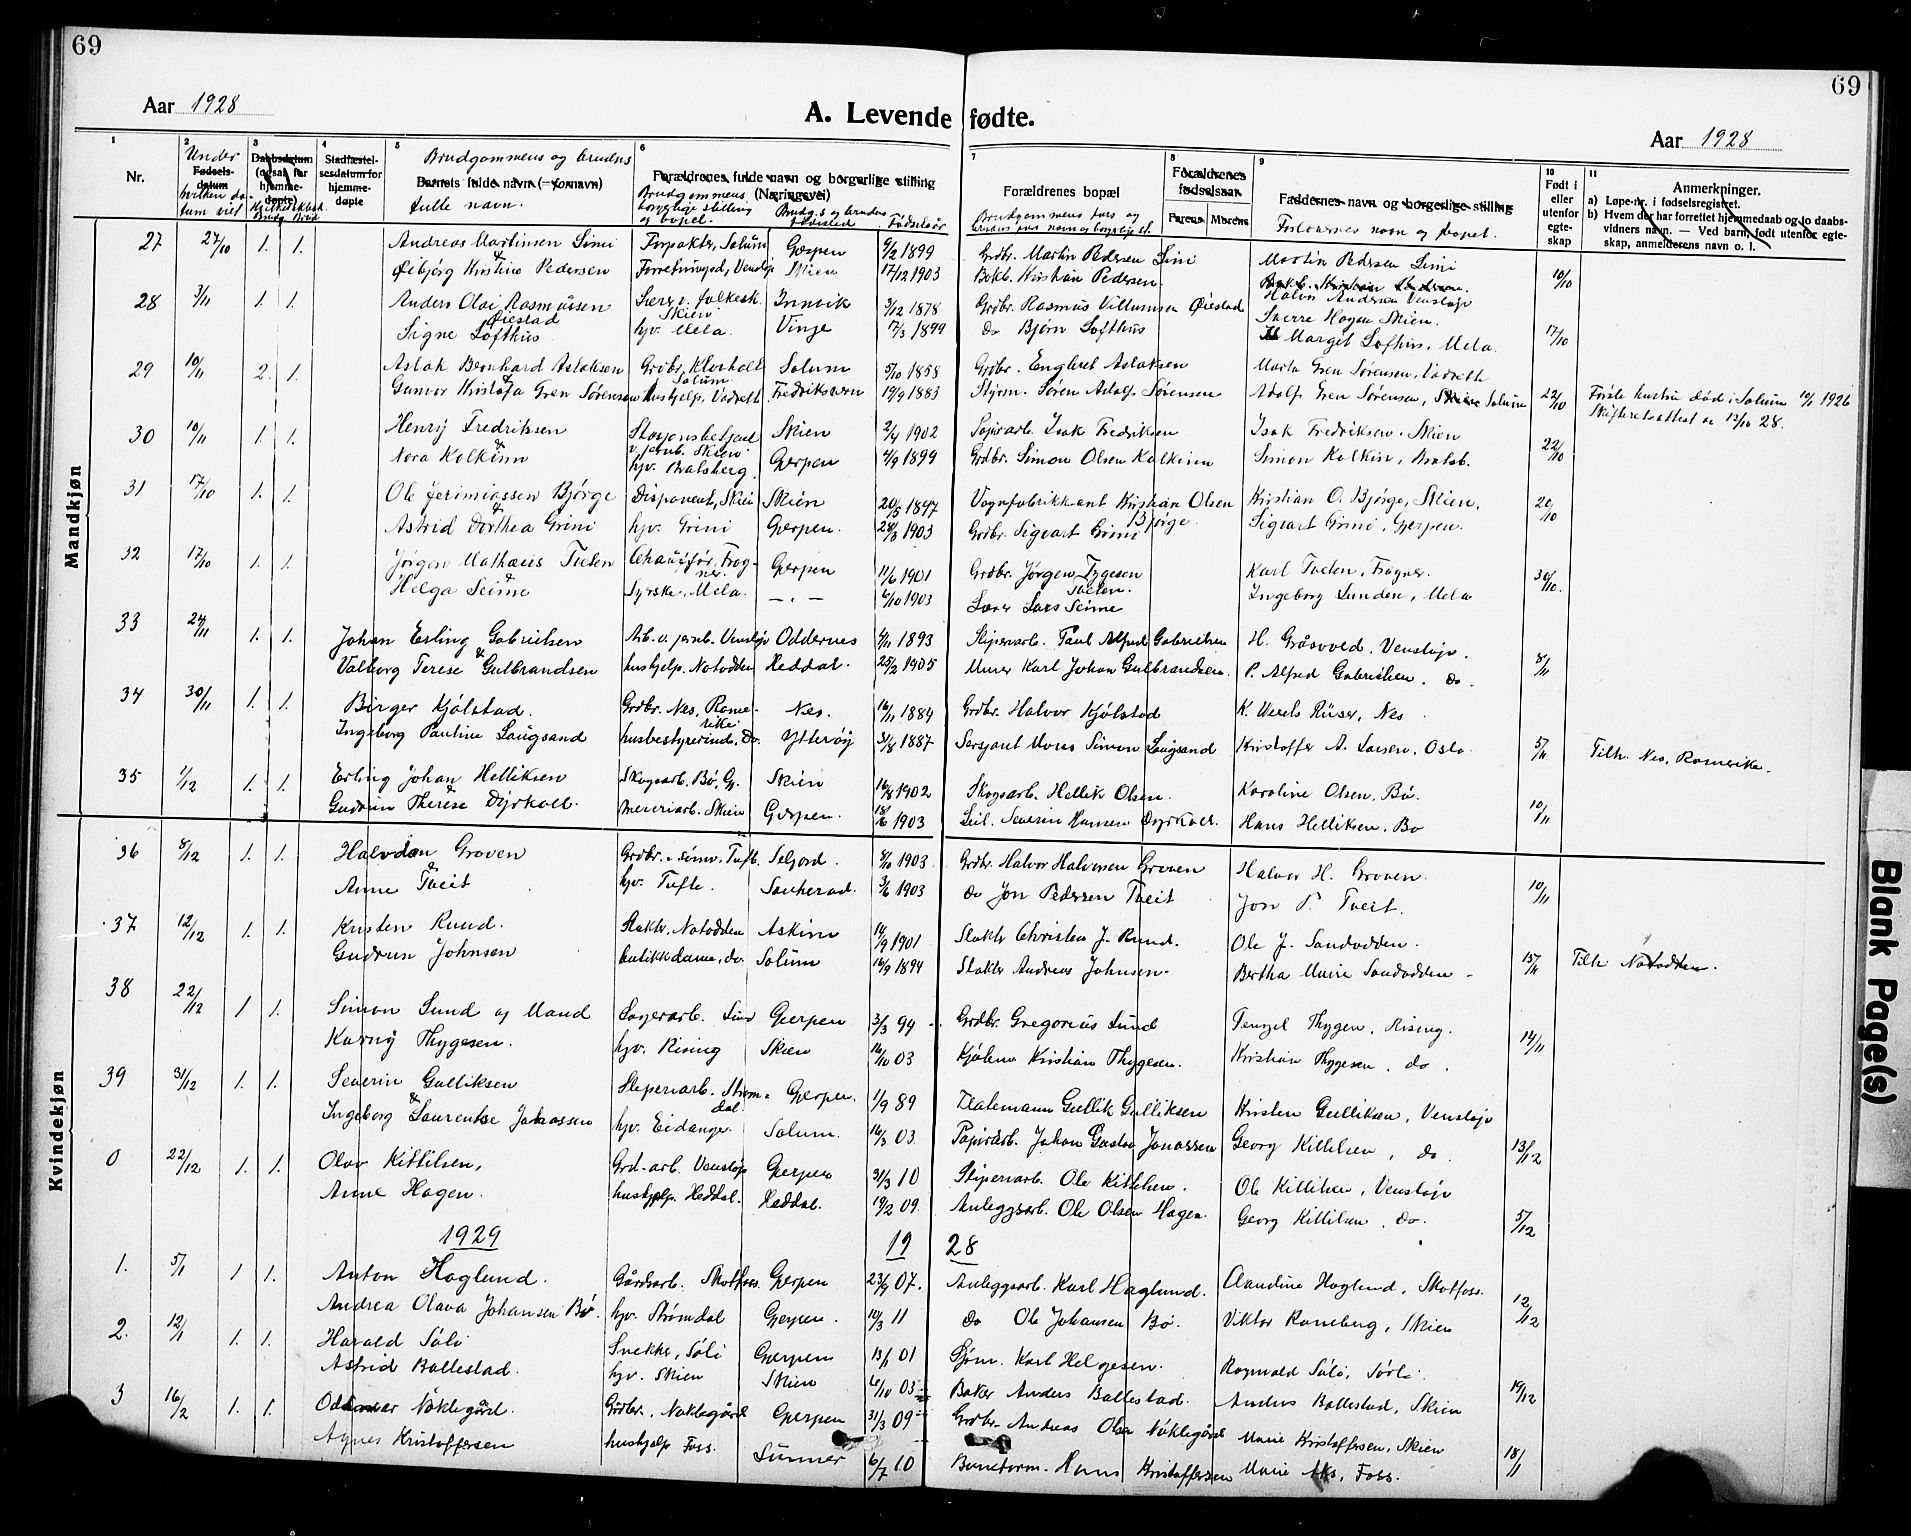 69
69
Aar 1928
A. Levende fødte.
Aar 1928
1
2
3
4
5
6
7
8
9
10
11
Nr.
Under Fødselsdatum hvilken datum viet
Daabsdatum (ogsaa for hjemmedøpte)
Stadfæstelsesdatum for hjemmedøpte
Brudgommens og brudens
Barnets fulde navn (= fornavn)
fulle navn.
Forældrenes fulde navn og borgerlige stilling (Næringsvei)
Brudgommens borgerlige stilling og bopel.
Brudg.s og brudens fødested
Fødselsår
Forældrenes bopæl
Brudgommens fars og brudens fars navn og borgerlig st.
Forældrenes fødselsaar
Farens
Morens
Faddernes navn og borgerlige stilling
Forlovernes navn og bopel.
Født i eller utenfor egteskap
Anmerkninger.
a) Løpe-nr. i fødselsregistret.
b) Hvem der har forrettet hjemmedaab og to daabsvidners navn. — Ved barn, født utenfor egteskap, anmelderens navn o. l.
Mandkjøn
27 27/10 1. 1. Andreas Martinsen Limi Forpakter, Solum Gerpen 9/2 1899 Grdbr. Martin Pedersen Limi Martin Pedersen Limi 10/10
& Øibjørg Kristine Pedersen Skien 17/12 1903 Bokb. Kristian Pedersen
28 3/11 1. 1. Anders Olai Rasmussen Øiestad Lærer v. folkesk. Skien Innvik 3/12 1878 Grdbr. Rasmus Villumsen Øiestad Halvor Andersen Venstøp
Sverre Hagen Skien. 17/10
Signe Lofthus hjv. Mela. Vinje 17/3 1899 do Bjørn Lofthus Margit Lofthus, Mela.
29 10/11 2. 1. Aslak Bernhard Aslaksen Grdbr. Klovholt Solum Solum 5/10 1858 Grdbr. Engbret Aslaksen Marta Gren Sørensen, Vadrette
& Gunvor Kristofa Gren Sørensen Hushjelp, Vadrett. Fredriksvern 19/9 1883 Styrm. Søren Adolf Sørensen Adolf Gren Sørensen, Solum 22/10 Første hustru død i Solum 1926
Skifteretsattest av 13/10 28.
30 10/11 1. 1. Henry Fredriksen Stasjonsbetjent v. jernb. Skien Skien 2/4 1902 Papirarb. Isak Fredriksen Isak Fredriksen. Skien
& Nora Kolkinn hjv. Bratsberg Gjerpen 4/9 1899 Grdbr. Simon Olsen Kolkinn Simon Kolkin, Bratsb. 22/10
31 17/10 1. 1. Ole Jerimiassen Bjørge Disponent, Skien Skien 20/5 1847 Vognfabrikkant Kristian Olsen Bjørge. Kristian O. Bjørge, Skien. 20/10
& Astrid Dorthea Grini hjv. Grini Gjerpen. 1903 Grdbr. Sigvart Grini Sigvart Grini, Gjerpen.
32 17/10 1. 1. Jørgen Mathæus Tveten Chauffør, Frogner. Gjerpen 11/6 1901 Grdbr. Jørgen Tygesen Tveten. Karl Tveten, Frogner. 30/10.
& Helga Seime Syerske, Mela. —"— 6/10 1903 Lærer Lars Seime Ingeborg Lunden, Mela
33 24/11 1. 1. Johan Erling Gabrielsen Arb. v. jernb. Venstøp Oddernes 5/11 1893 Sliperiarb. Paul Alfred Gabrielsen H. Gråvold, Venstøp.
& Valborg Terese Gulbrandsen hushjelp. Notodden Heddal. 25/2 1905 Murer Karl Johan Gulbrandsen. P. Alfred Gabrielsen. do 8/11
34 30/11 1. 1. Birger Kjølstad. Grdbr. Nes, Romerike Nes. 16/11 1884 Grdbr. Halvor Kjølstad K. Wexels Riiser, Nes
Ingeborg Pauline Laugsand husbestyrerinde, do. Ytterøy 31/8 1887 Sersjant Mons Simon Laugsand Kristoffer A. Larsen, Oslo 5/11 Tilh. Nes, Romerike.
35 1/12 1. 1. Erling Johan Helliksen Skogsarb. Bø, Gj. Skien 16/8 1902 Skogsarb. Hellik Olsen. Karoline Olsen, Bø.
& Gudrun Therese Dyrkoll. meieriarb. Skien Gjerpen. 18/6 1903 Severin Hansen Dyrkoll. Hans Helliksen, Bø 10/11
Kvindekjøn
36 8/12 1. 1. Halvdan Groven Grdbr.s sønn. Tufte. Seljord. 8/10 1903 Grdbr. Halvor Halvorsen Groven Halvor H. Groven.
& Anne Tveit hjv. Tufte. Sauherad. 3/6 1903 do Jon Pedersen Tveit Jon P. Tveit. 10/11
37 12/12 1. 1. Kristen Ruud. Slakter, Notodden Askim 14/9 1901 Slakter Christen J. Ruud. Ole J. Sandodden.
Gudrun Johnsen butikkdame, do. Solum 16/9 1894 Slakter Andreas Johnsen. Bertha Marie Sandodden 15/11 Tilh. Notodden.
38 22/12 1 1. Simon Lund og Maud Lagerarb. Lund Gjerpen 3/3 94 Grdbr. Gregorius Lund Tengel Thygen, Rising.
Karny Thygesen. hjv. Rising Skien 16/10 03 Kjøbm Kristian Thygesen. Kristian Thygesen. do. 14/11
39 31/12 1. 1. Severin Gulliksen Sliperiarb. Strømdal Gjerpen. 11/9 89 Gullik Gulliksen Kristen Gulliksen, Venstøp
& Ingeborg Laurentse Johassen hjv. Eidanger. Solum. 16/3 03. Papirarb. Johan Gustav Jonassen Georg Kittilsen, do. 13/12
0 22/12 1. 1. Olav Kittilsen, Grd-arb. Venstøp Gjerpen 31/3 10 Sliperiarb. Ole Kittilsen. Ole Kittilsen, Venstøp
Anne Hagen. hushjelp. Heddal. Heddal. 19/2 09. Anleggsarb. Ole Olsen Hagen. Georg Kittilsen. do. 5/12
1929
19 28
1. 5/1 1 1. Anton Hoglund. Gårdsarb. Skotfoss. Gjerpen 23/9 07. Anleggsarb. Karl Haglund. Claudine Hoglund, Skotfoss.
Andrea Olava Johansen Bø. hjv. Strømdal Gjerpen. 14/3 11 do Ole Johansen Bø. Viktor Raneberg, Skien 12/12
2. 12/1 1. 1. Harald Søli Snekker, Søli Gjerpen 13/1 01 Sjøm. Karl Helgesen. Ragnvald Søli, Søli.
Astrid Ballestad. hjv. Skien Skien 6/10 03 Baker Anders Ballestad. Anders Ballestad, Skien 19/12
3 16/2 1. 1. Oddmar Nøklegård. Grdbr., Nøklegård Gjerpen 31/3 09 Grdbr. Andreas Olsen Nøklegård Marie Kristoffersen, Skien
Agnes Kristoffersen hushjelp Foss. Lunner 6/7 10 Baneform. Hans Kristoffersen Marie Aas, Foss. 18/1
Blank Page(s)